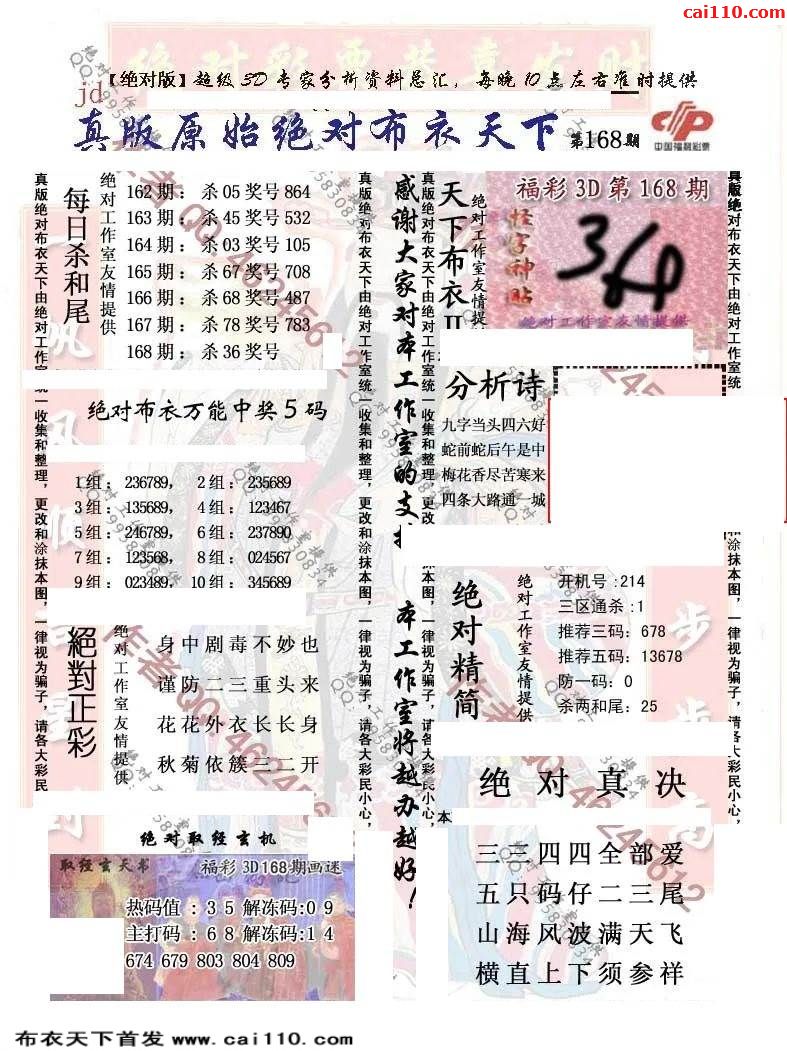 cai110.com
【绝对版】超级3D专家分析资料总汇，每晚10点左右准时提供
jd
真版原始绝对布衣天下 第168期
中国福利彩票
真版绝对布衣天下由绝对工作室统一收集和整理，更改和涂抹本图，一律视为骗子，请各大彩民小心，
每日杀和尾
绝对工作室友情提供
162期：杀05奖号864
163期：杀45奖号532
164期：杀03奖号105
165期：杀67奖号708
166期：杀68奖号487
167期：杀78奖号783
168期：杀36奖号
绝对布衣万能中奖5码
1组：236789， 2组：235689
3组：135689， 4组：123467
5组：246789， 6组：237890
7组：123568， 8组：024567
9组：023489， 10组：345689
絕對正彩
绝对工作室友情提供
身中剧毒不妙也
谨防二三重头来
花花外衣长长身
秋菊依簇三二开
绝对取经玄机
取经玄天书
福彩3D168期画迷
热码值：35解冻码:09
主打码：68解冻码:14
674 679 803 804 809
真版绝对布衣天下由绝对工作室统一收集和整理，更改和涂抹本图，一律视为骗子，请各大彩民小心，
感谢大家对本工作室的支
本工作室将越办越好！
真版绝对布衣天下由绝对工作室统一收集和整理，更改和涂抹本图，一律视为骗子，请各大彩民小心，
本
天下布衣II
绝对工作室友情提
福彩3D第168期
怪字神贴
364
绝对工作室友情提供
分析诗
九字当头四六好
蛇前蛇后午是中
梅花香尽苦寒来
四条大路通一城
绝对精简
绝对工作室友情提供
开机号:214
三区通杀:1
推荐三码：678
推荐五码：13678
防一码：0
杀两和尾：25
绝对真决
三三四四全部爱
五只码仔二三尾
山海风波满天飞
横直上下须参祥
真版绝对布衣天下由绝对工作室统
和涂抹本图，一律视为骗子，请各大彩民小心，
布衣天下首发 www.cai110.com